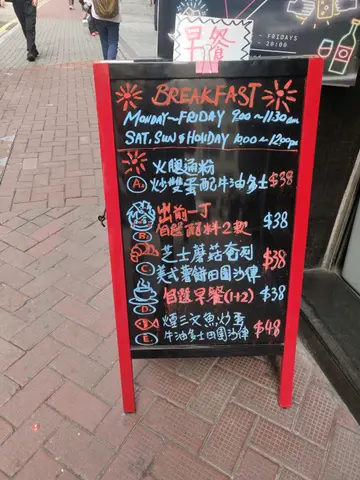 FRIDAYS
20:00
早餐
BREAKFAST
MONDAY~FRIDAY 9:00~11:30am
SAT, SUN & HOLIDAY 10:00~12:00pm
火腿通粉
A. 炒雙蛋配牛油多士 $38
出前一丁
B. 自選配料2款 $38
芝士蘑菇奄列 $38
C 美式薯餅田園沙律
自選早餐(1+2) $38
D.
煙三文魚炒蛋 $48
E 牛油多士田園沙律